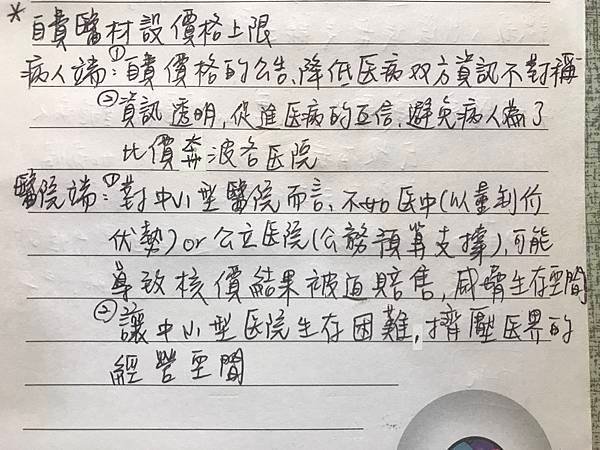 * 自費醫材設價格上限
病人端:①自費價格的公告,降低医病双方資訊不對稱
②資訊透明,促進医病的互信,避免病人為了
比價奔波各医院
醫院端:①對中小型醫院而言,不如医中(以量制价
优勢)or公立医院(公務預算支撐),可能
導致核價結果被迫賠售,威脅生存空間
②讓中小型医院生存困難,擠壓医界的
經營空間